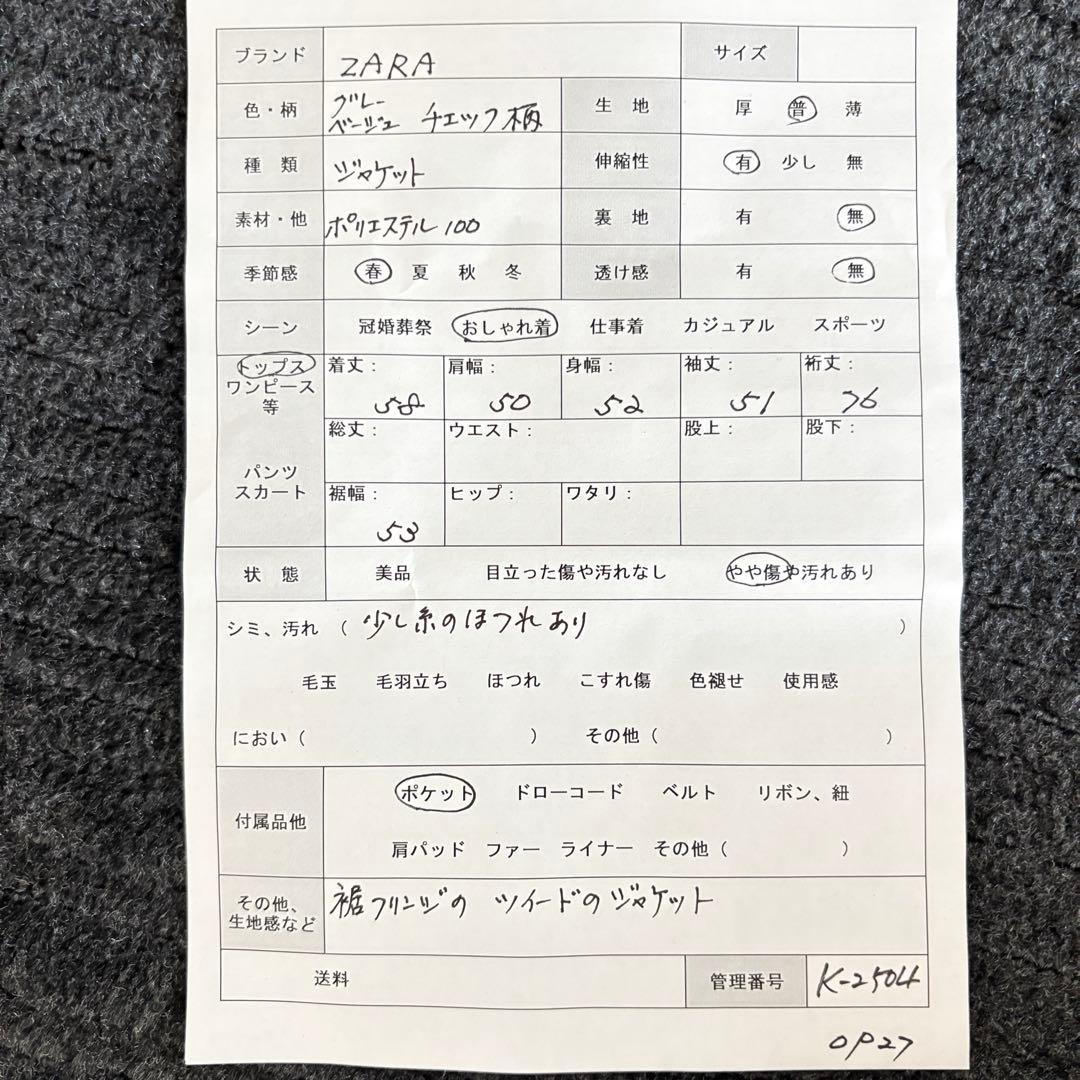 ブランド ZARA サイズ
色・柄 グレー ベージュ チェック柄 生 地 厚 普 薄
種 類 ジャケット 伸縮性 有 少し 無
素材・他 ポリエステル 100 裏 地 有 無
季節感 春 夏 秋 冬 透け感 有 無
シーン 冠婚葬祭 おしゃれ着 仕事着 カジュアル スポーツ
トップス ワンピース 等 着丈： 58 肩幅： 50 身幅： 52 袖丈： 51 裄丈： 76
総丈： ウエスト： 股上： 股下：
パンツ スカート
裾幅： 53 ヒップ： ワタリ：
状 態 美品 目立った傷や汚れなし やや傷や汚れあり
シミ、汚れ （ 少し糸のほつれあり ）
毛玉 毛羽立ち ほつれ こすれ傷 色褪せ 使用感
におい（ ） その他（ ）
付属品他 ポケット ドローコード ベルト リボン、紐
肩パッド ファー ライナー その他（ ）
その他、 生地感など 裾フリンジの ツイードのジャケット
送料 管理番号 K-2504
OP27